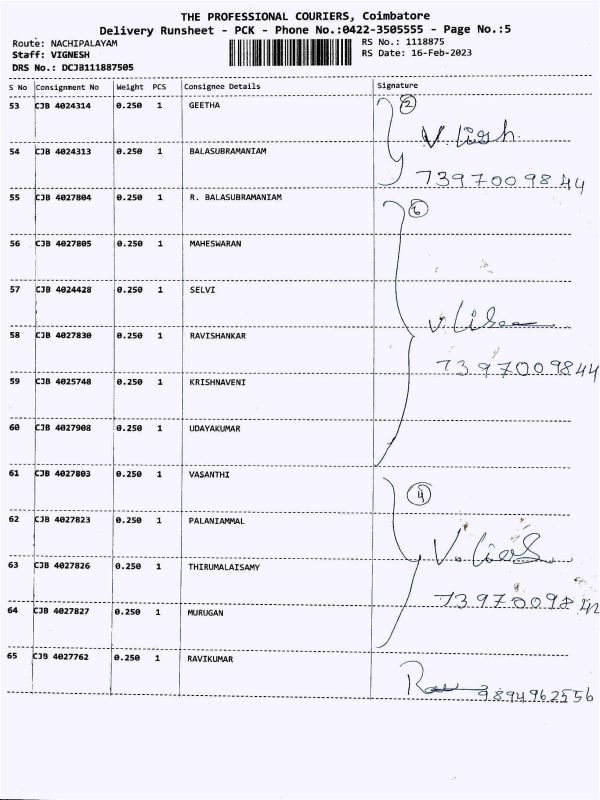 THE PROFESSIONAL COURIERS, Coimbatore
Delivery Runsheet - PCK - Phone No.:0422-3505555 - Page No.:5
Route: NACHIPALAYAM RS No.: 1118875
Staff: VIGNESH RS Date: 16-Feb-2023
DRS No.: DCJB111887505
S No Consignment No Weight PCS Consignee Details Signature
53 CJB 4024314 0.250 1 GEETHA 2
54 CJB 4024313 0.250 1 BALASUBRAMANIAM
7397009844
55 CJB 4027804 0.250 1 R. BALASUBRAMANIAM 6
56 CJB 4027805 0.250 1 MAHESWARAN
57 CJB 4024428 0.250 1 SELVI
58 CJB 4027830 0.250 1 RAVISHANKAR
7397009844
59 CJB 4025748 0.250 1 KRISHNAVENI
60 CJB 4027908 0.250 1 UDAYAKUMAR
61 CJB 4027803 0.250 1 VASANTHI 4
62 CJB 4027823 0.250 1 PALANIAMMAL
63 CJB 4027826 0.250 1 THIRUMALAISAMY
64 CJB 4027827 0.250 1 MURUGAN
65 CJB 4027762 0.250 1 RAVIKUMAR
9894962556